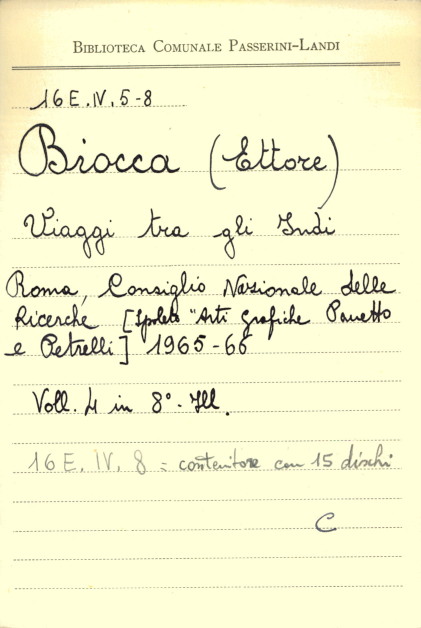 BIBLIOTECA COMUNALE PASSERINI-LANDI
16 E. IV. 5-8
Biocca (Ettore)
Viaggi tra gli Indi
Roma, Consiglio Nazionale delle
Ricerche [Spoleto "Arti Grafiche Panetto
e Petrelli] 1965-66
Voll. 4 in 8°. Ill.
16 E. IV. 8 = contenitore con 15 dischi
C